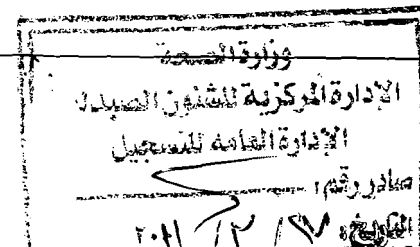 وزارة الصحة
الإدارة المركزية للشئون الصيدلية
الإدارة العامة للتسجيل
صادر رقم:
التاريخ:    /    / ٢٠١١